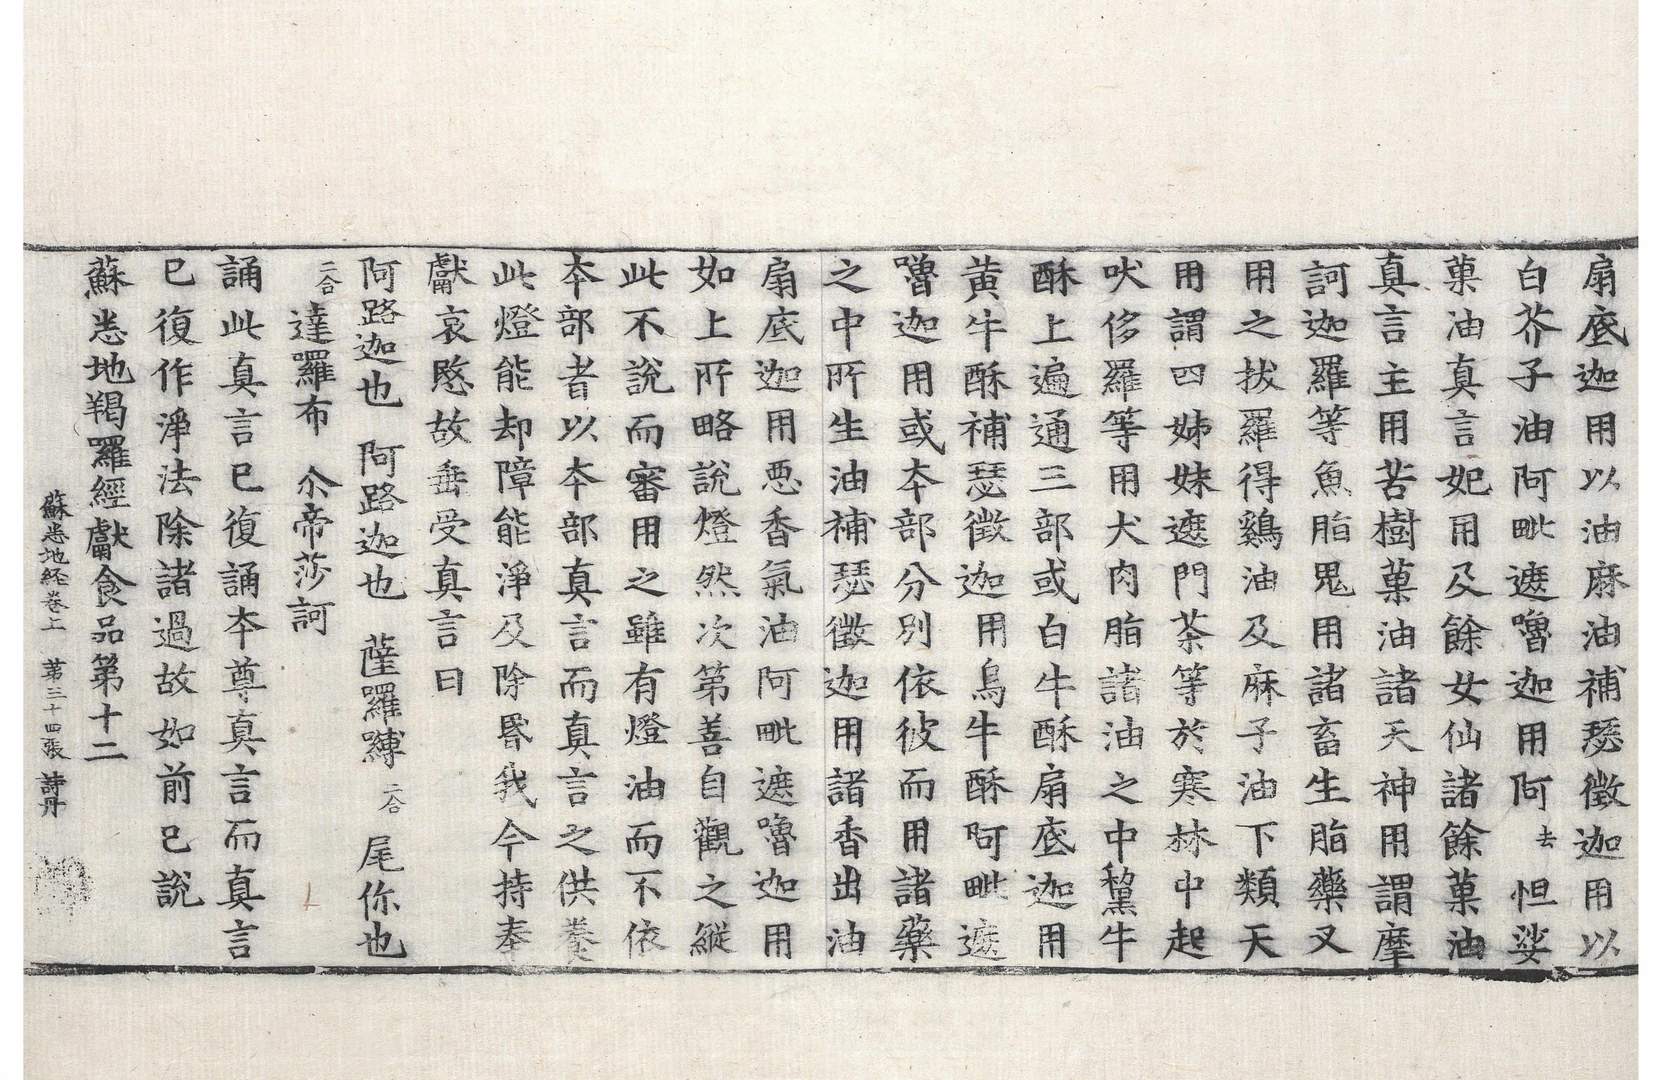 扇底迦用以油麻油補瑟徵迦用以
白芥子油阿毗遮嚕迦用阿去怛娑
菓油真言妃用及餘女仙諸餘菓油
真言主用苦樹菓油諸天神用謂摩
訶迦羅等魚脂鬼用諸畜生脂藥叉
用之拔羅得鷄油及麻子油下類天
用謂四姊妹遮門荼等於寒林中起
吠侈羅等用犬肉脂諸油之中黧牛
酥上遍通三部或白牛酥扇底迦用
黄牛酥補瑟徵迦用烏牛酥阿毗遮
嚕迦用或夲部分別依彼而用諸藥
之中所生油補瑟徵迦用諸香出油
扇底迦用悪香氣油阿毗遮嚕迦用
如上所略說燈然次第善自觀之縱
此不說而審用之雖有燈油而不依
夲部者以夲部真言而真言之供養
此燈能却障能淨及除昏我今持奉
獻哀愍故垂受真言曰
阿路迦也 阿路迦也 薩羅嚩二合尾你也
二合達羅布 尒帝莎訶
誦此真言已復誦夲尊真言而真言
已復作淨法除諸過故如前已說
蘇悉地羯羅經獻食品第十二
蘇悉地経卷上 第三十四張 詩丹